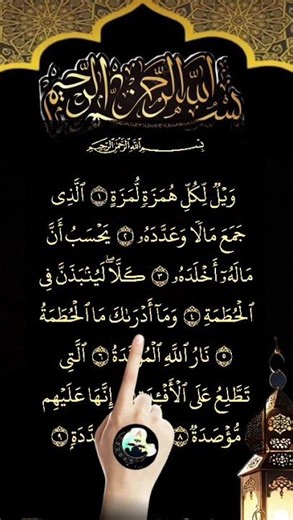 بسم الله الرحمن الرحيم
بِسْمِ ٱللَّهِ ٱلرَّحْمَٰنِ ٱلرَّحِيمِ
وَيْلٌ لِّكُلِّ هُمَزَةٍ لُّمَزَةٍ ١ ٱلَّذِى
جَمَعَ مَالًا وَعَدَّدَهُۥ ٢ يَحْسَبُ أَنَّ
مَالَهُۥٓ أَخْلَدَهُۥ ٣ كَلَّا ۖ لَيُنۢبَذَنَّ فِى
ٱلْحُطَمَةِ ٤ وَمَآ أَدْرَىٰكَ مَا ٱلْحُطَمَةُ
٥ نَارُ ٱللَّهِ ٦ ٱلَّتِى
تَطَّلِعُ عَلَى إِنَّهَا عَلَيْهِم
مُّؤْصَدَةٌ ٨ ٩